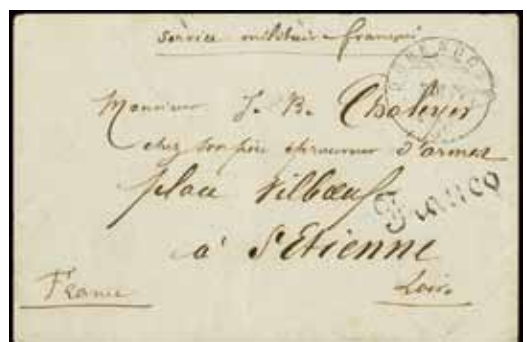 Service militaire français
Monsieur J. B. Chaleyer
chez son père éprouveur d'armes
place Villbœuf
Franco
à St Etienne
France
Loire